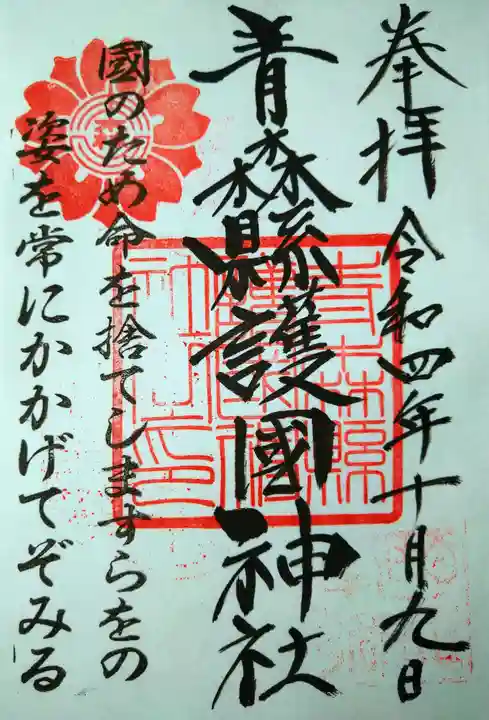 奉拝 令和四年十月九日
青森縣護國神社
國のため命を捨てしますらをの
姿を常にかかげてぞみる